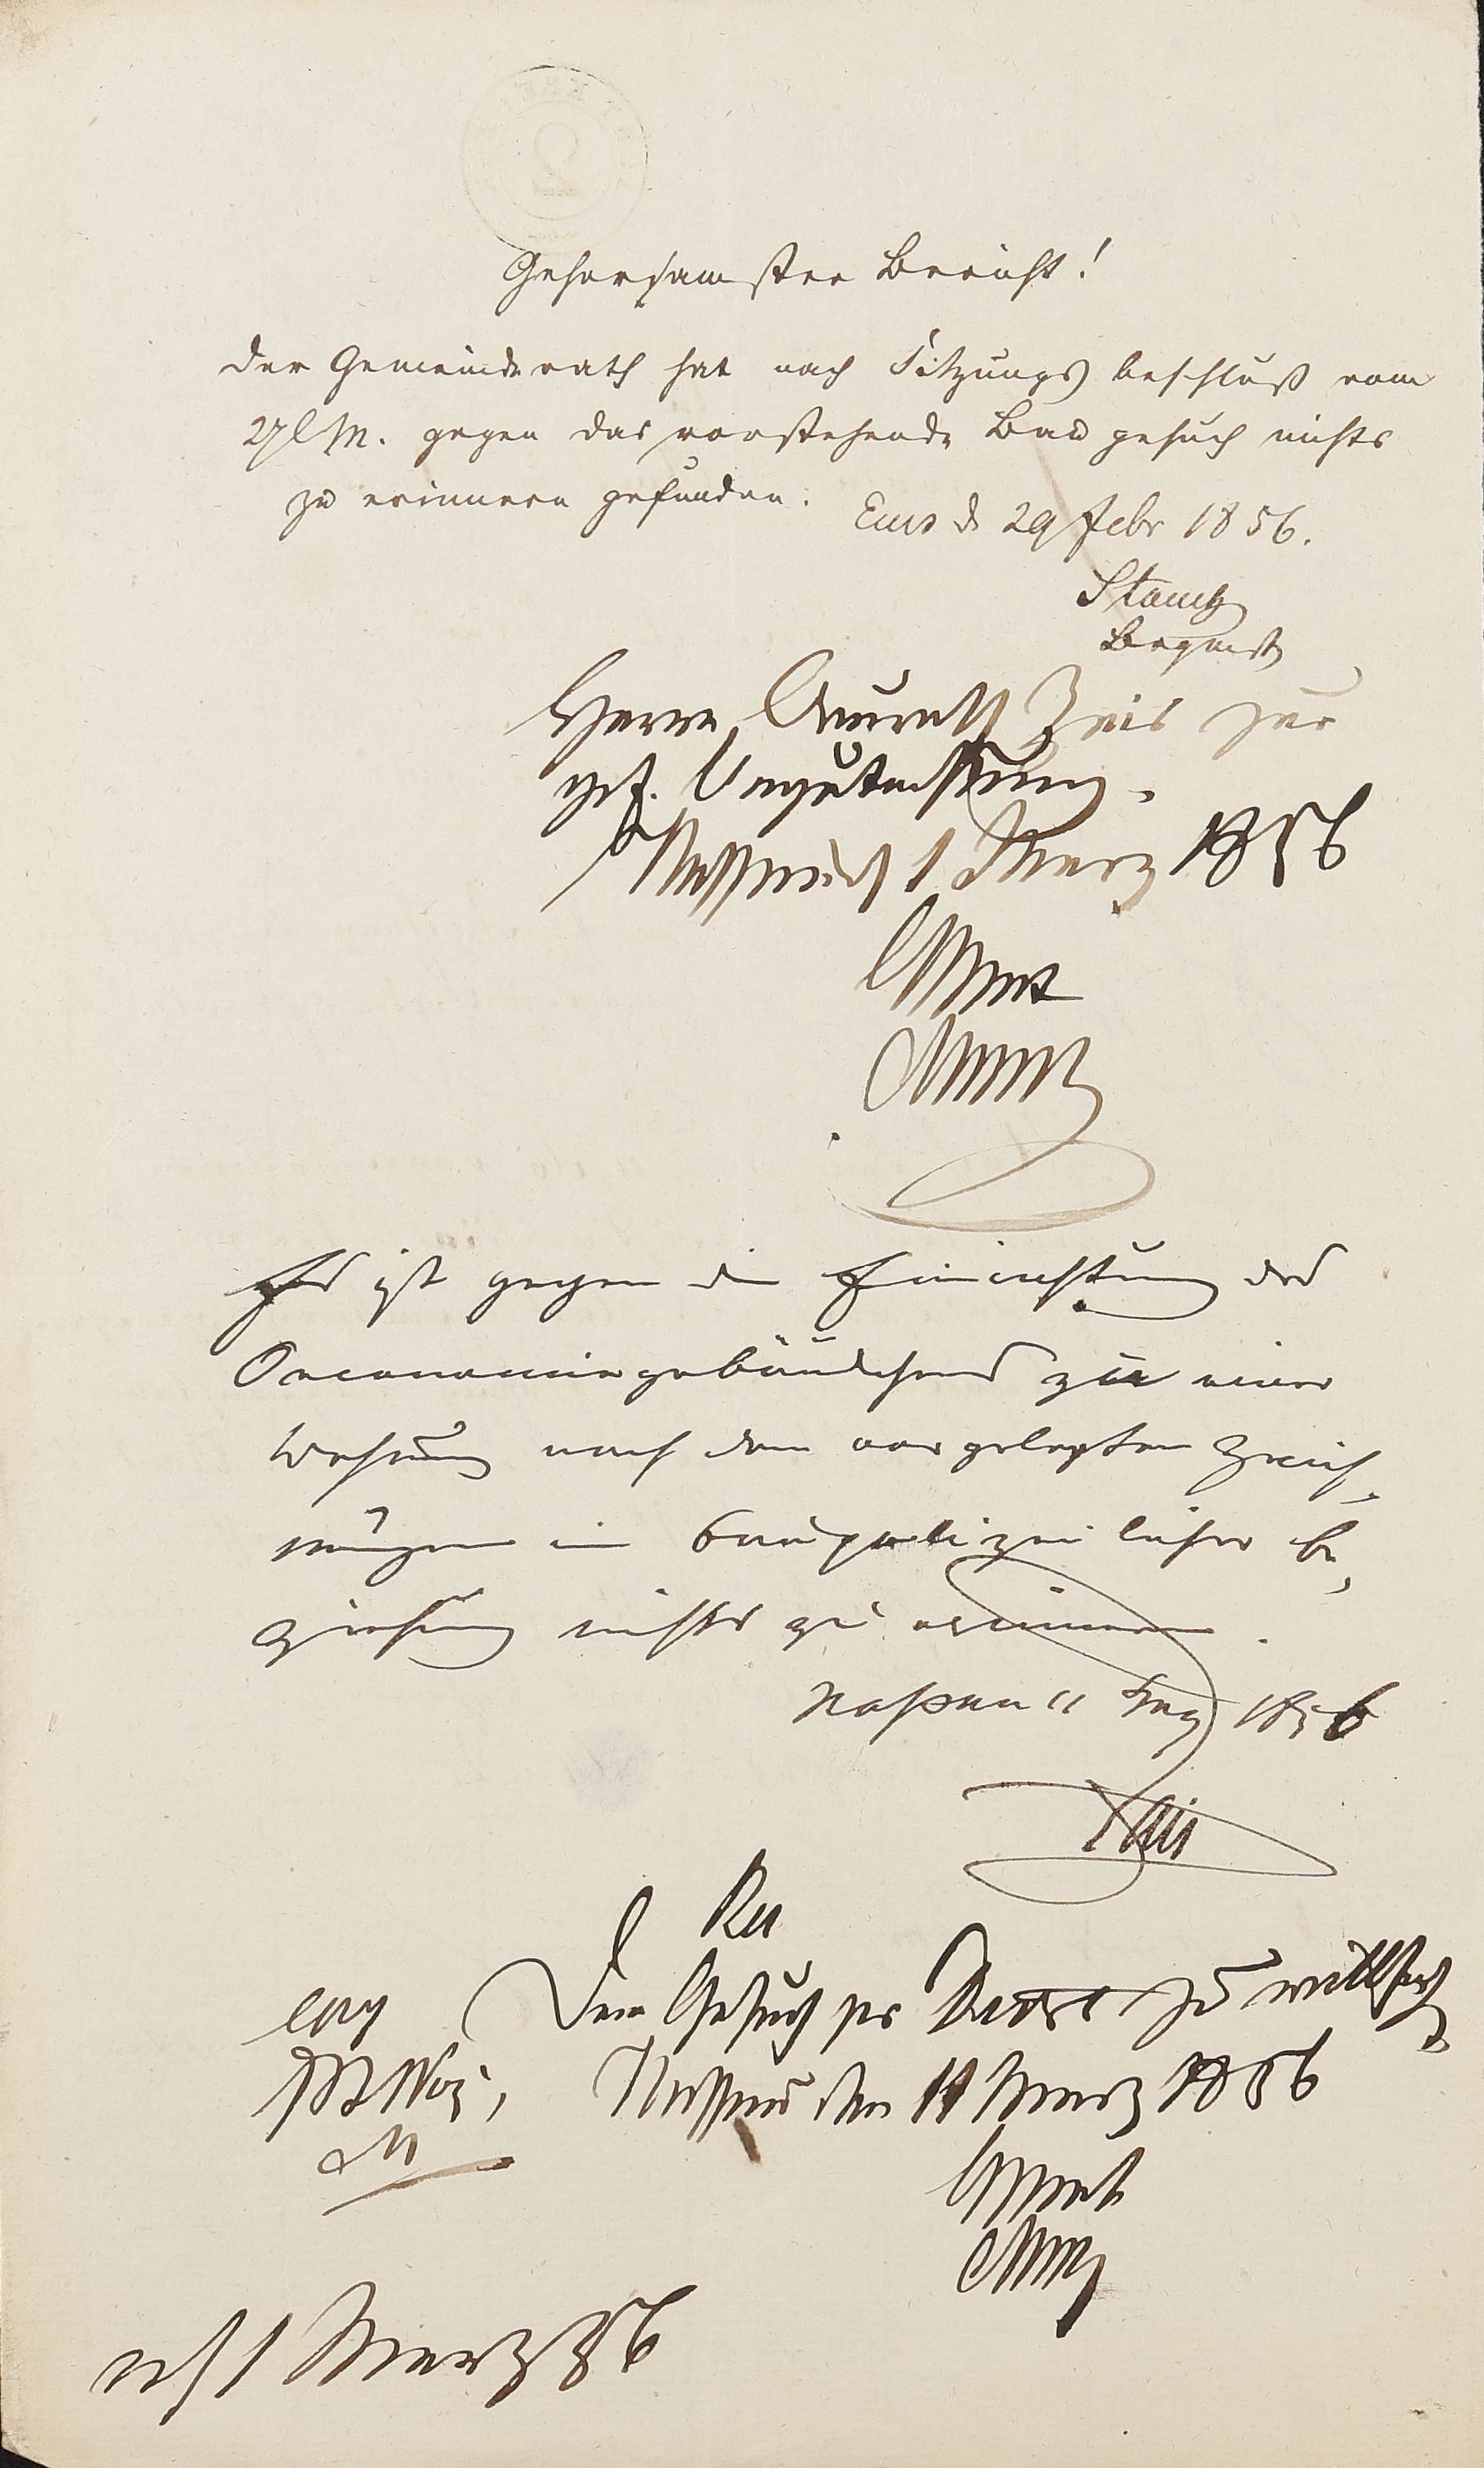 Gehorsamster Bericht!
Der Gemeinderath hat nach Sitzungsbeschluß vom
27 l. M. gegen das vorstehende Baugesuch nichts
zu erinnern gefunden.
Ems d 29 Febr 1856.
Stamb
Brgmstr
Herrn Baurath Zais zur
gef. Begutachtung.
Nassau d 1 Maerz 1856
Amt
Es ist gegen die Einrichtung des
Oeconomiegebäudchens zu einer
Wohnung nach den vorgelegten Zeich-
nungen in baupolizeilicher Be-
ziehung nichts zu erinnern.
Nassau 11 Mrz 1856
Zais
Res
Dem Gesuch per Decret zu willfah
Nassau den 11 Maerz 1856
Amt
1 Maerz 56